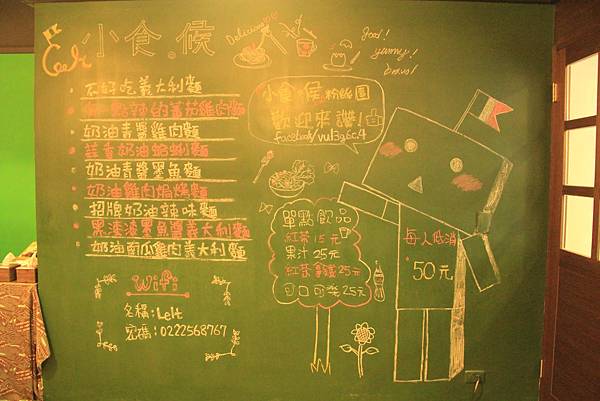 小食.候
Delicious
good!
yummy!
不好吃義大利麵
有一點辣的蕃茄雞肉麵
奶油青醬雞肉麵
蒜香奶油蛤蜊麵
奶油青醬墨魚麵
奶油雞肉焗烤麵
招牌奶油辣味麵
黑漆漆墨魚醬義大利麵
奶油南瓜雞肉義大利麵
小食。候粉絲團
歡迎來讚!
facebook/vul3g6c4
單點飲品
紅茶15元
果汁25元
紅茶拿鐵25元
可口可樂25元
每人低消
50元
wifi
名稱:Lelt
密碼:0222568767